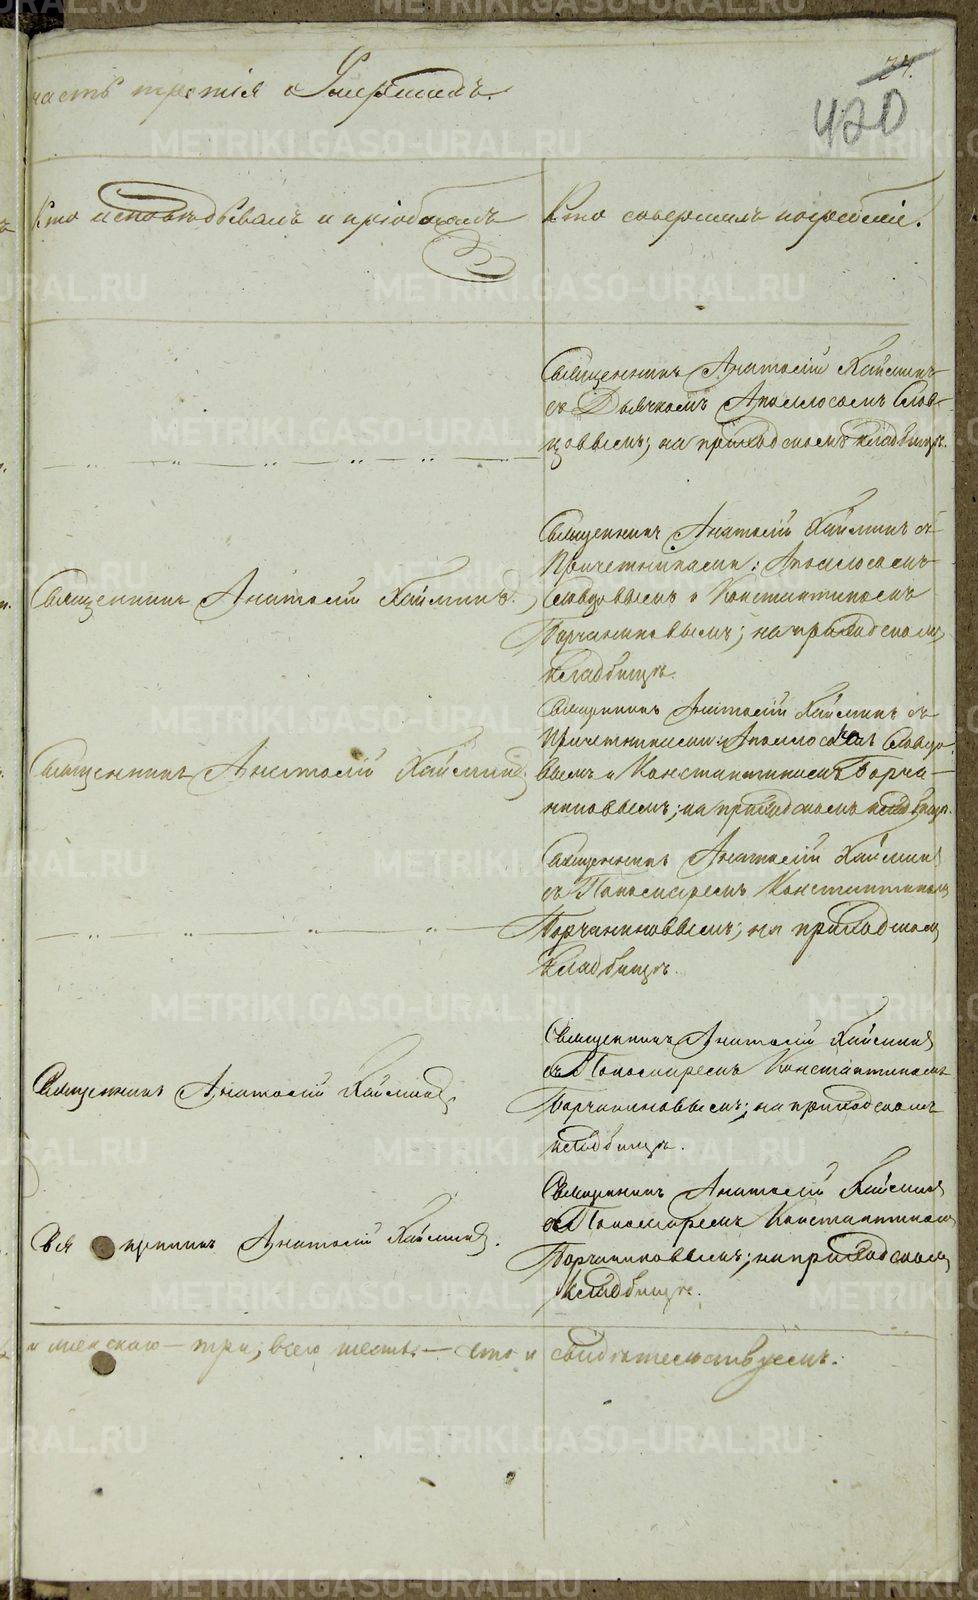 часть третія о Умершихъ.
24.
420
Кто исповѣдывалъ и пріобщалъ
Кто совершилъ погребеніе.
Священникъ Анатолій Хаймин
съ Дьячкомъ Аполлосомъ Слов-
цовымъ; на приходскомъ кладбищѣ.
Священникъ Анатолій Хайминъ съ
Причетниками: Аполлосомъ
Священникъ Анатолій Хайминъ.
Словцовымъ и Константиномъ
Торчаниновымъ; на приходскомъ
кладбищѣ.
Священникъ Анатолій Хайминъ съ
Причетниками: Аполлосомъ Словцо-
Священникъ Анатолій Хайминъ.
вымъ и Константиномъ Торча-
ниновымъ; на приходскомъ кладбищѣ.
Священникъ Анатолій Хайминъ
съ Пономаремъ Константиномъ
Торчаниновымъ; на приходскомъ
кладбищѣ.
Священникъ Анатолій Хайминъ
съ Пономаремъ Константиномъ
Священникъ Анатолій Хайминъ.
Торчаниновымъ; на приходскомъ
кладбищѣ.
Священникъ Анатолій Хайминъ
съ Пономаремъ Константиномъ
Анатолій Хайминъ.
Торчаниновымъ; на приходскомъ
кладбищѣ.
и женскаго – три; всего шесть – что и свидѣтельствуемъ.
METRIKI.GASO-URAL.RU